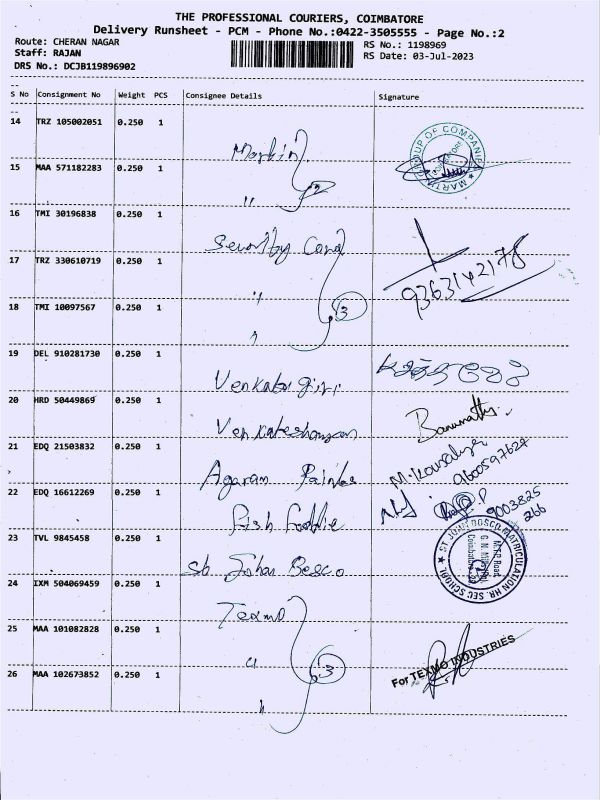 THE PROFESSIONAL COURIERS, COIMBATORE
Delivery Runsheet - PCM - Phone No.:0422-3505555 - Page No.:2
Route: CHERAN NAGAR
RS No.: 1198969
Staff: RAJAN
RS Date: 03-Jul-2023
DRS No.: DCJB119896902
S No Consignment No Weight PCS Consignee Details Signature
14 TRZ 105002051 0.250 1
Martin
GROUP OF COMPANIES
MARTIN
15 MAA 571182283 0.250 1
"
2
16 TMI 30196838 0.250 1
Security Card
17 TRZ 330610719 0.250 1
"
9363142178
18 TMI 10097567 0.250 1
3
"
19 DEL 910281730 0.250 1
Venkata giri
20 HRD 50449869 0.250 1
Venkateshanyam
Banumathy.
21 EDQ 21503832 0.250 1
Agaram Paints
M. Kousalya
9600597627
22 EDQ 16612269 0.250 1
Fish Foodie
9003825
266
23 TVL 9845458 0.250 1
St Johon Bosco
ST JOHN BOSCO MATRICULATION HR. SEC SCHOOL
M.T.P. Road,
G.N. Mills
Coimbatore
24 IXM 504069459 0.250 1
Texmo
25 MAA 101082828 0.250 1
"
3
For TEXMO INDUSTRIES
26 MAA 102673852 0.250 1
"